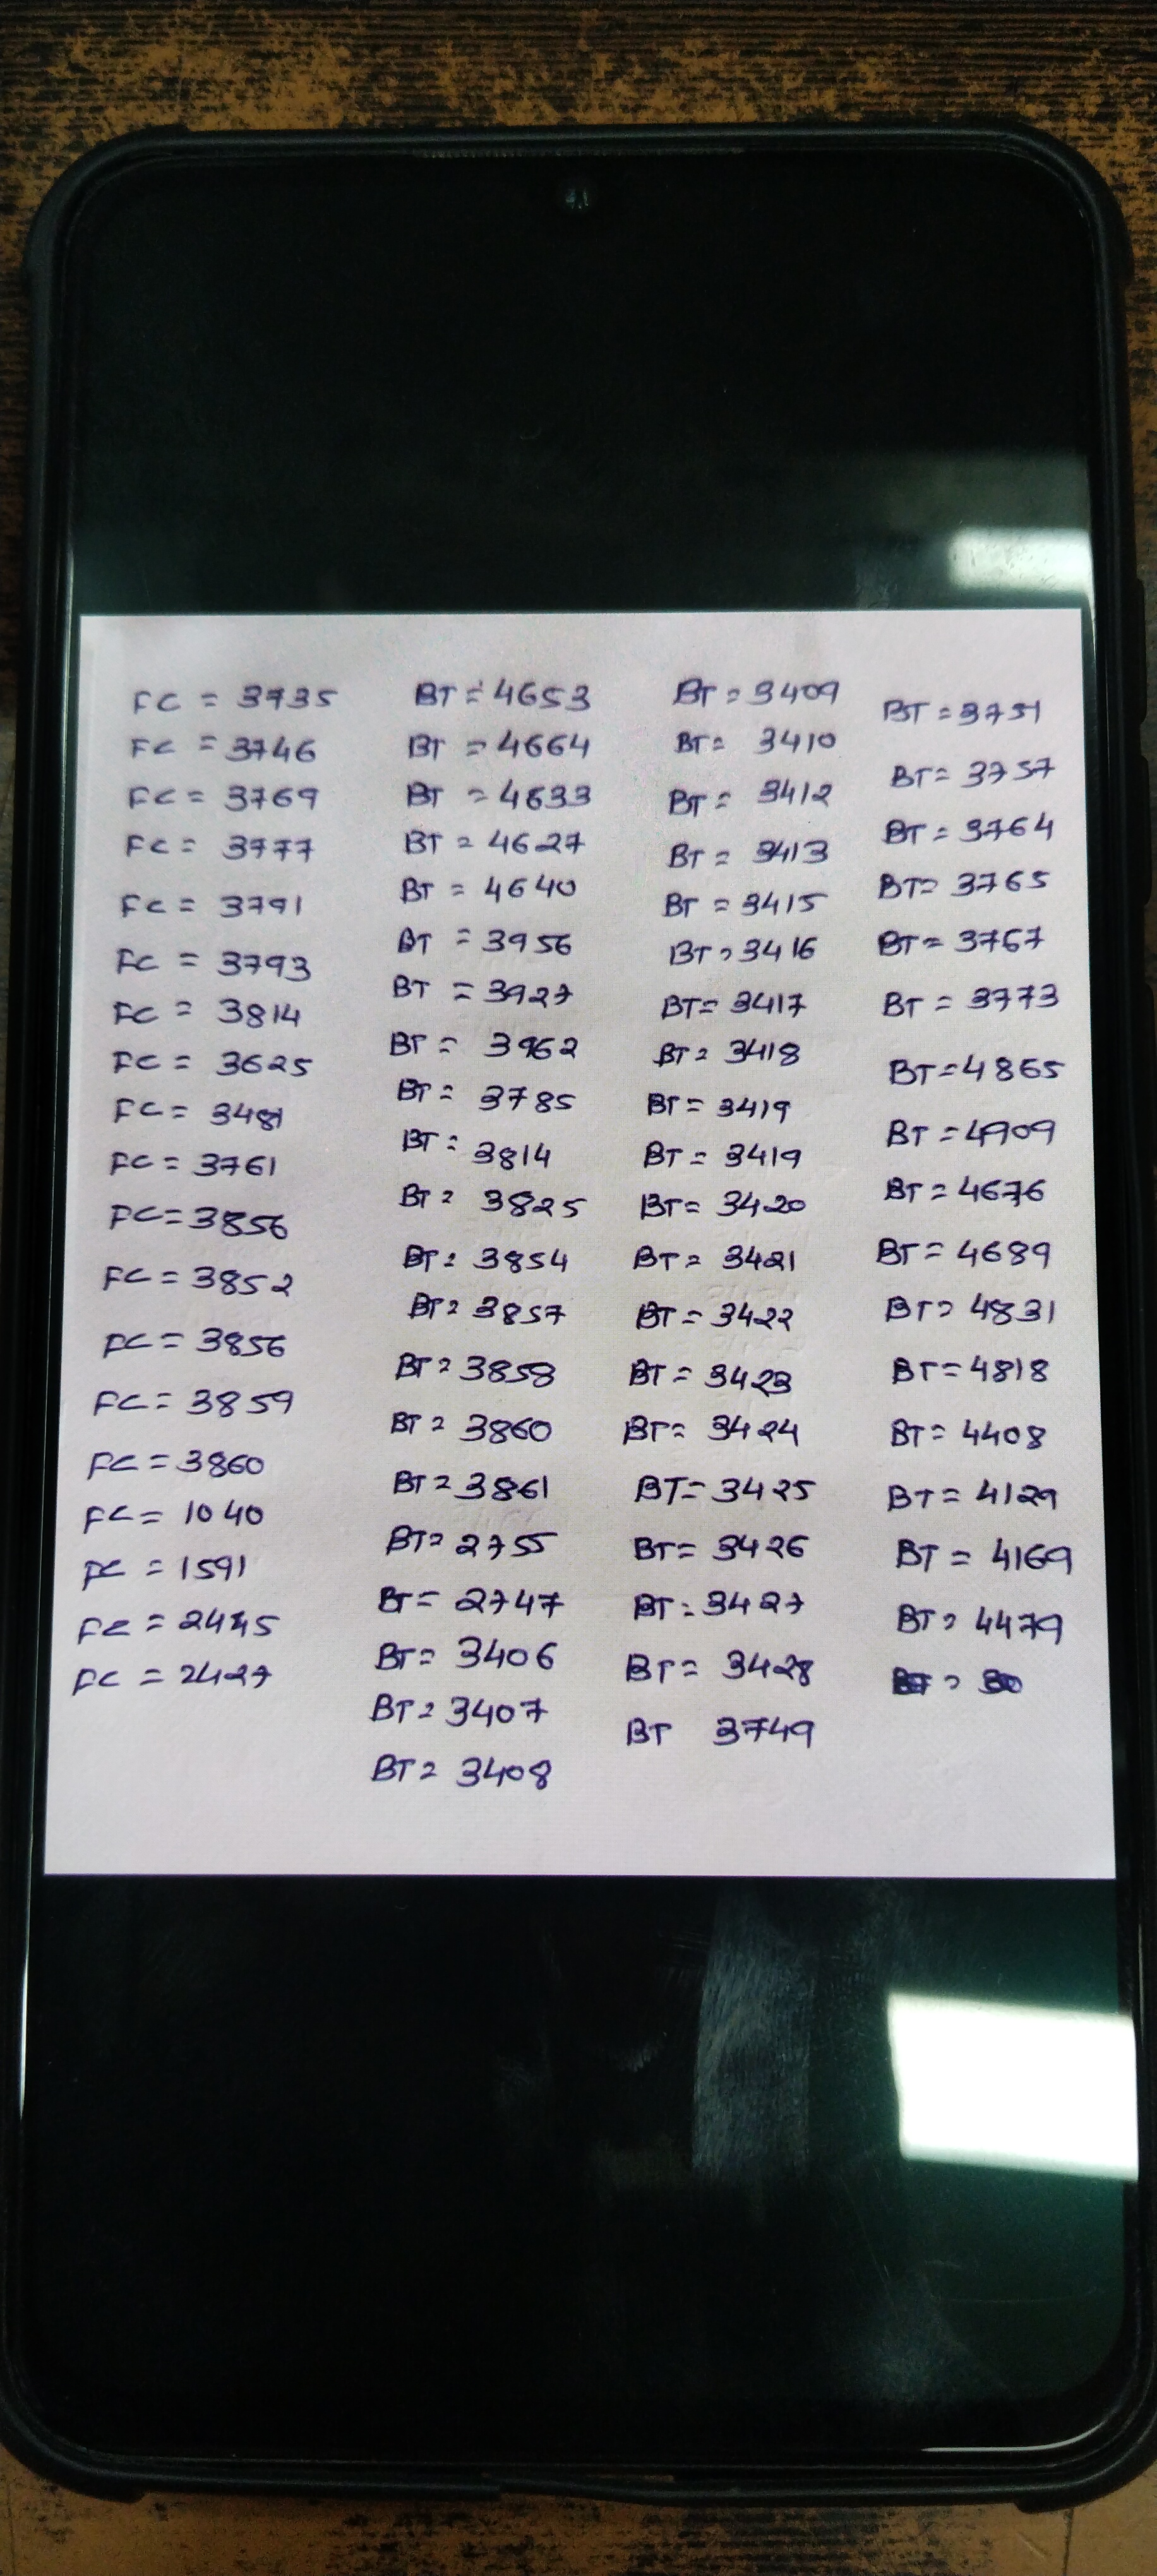 FC = 3735
FC = 3746
FC = 3769
FC = 3777
FC = 3791
FC = 3793
FC = 3814
FC = 3625
FC =
FC = 3761
FC = 3856
FC = 3852
FC = 3856
FC = 3859
FC = 3860
FC = 1040
FC = 1591
FC =
FC = 2427
BT = 4653
BT = 4664
BT = 4633
BT = 4627
BT = 4640
BT = 3956
BT = 3927
BT = 3962
BT = 3785
BT = 3814
BT = 3825
BT = 3854
BT = 3857
BT = 3858
BT = 3860
BT = 3861
BT = 2755
BT = 2747
BT = 3406
BT = 3407
BT = 3408
BT = 3409
BT = 3410
BT = 3412
BT = 3413
BT = 3415
BT = 3416
BT = 3417
BT = 3418
BT = 3419
BT = 3419
BT = 3420
BT = 3421
BT = 3422
BT = 3423
BT = 3424
BT = 3425
BT = 3426
BT = 3427
BT = 3428
BT 3749
BT = 3751
BT = 3757
BT = 3764
BT = 3765
BT = 3767
BT = 3773
BT = 4865
BT = 4909
BT = 4676
BT = 4689
BT = 4831
BT = 4818
BT = 4408
BT = 4129
BT = 4169
BT = 4479